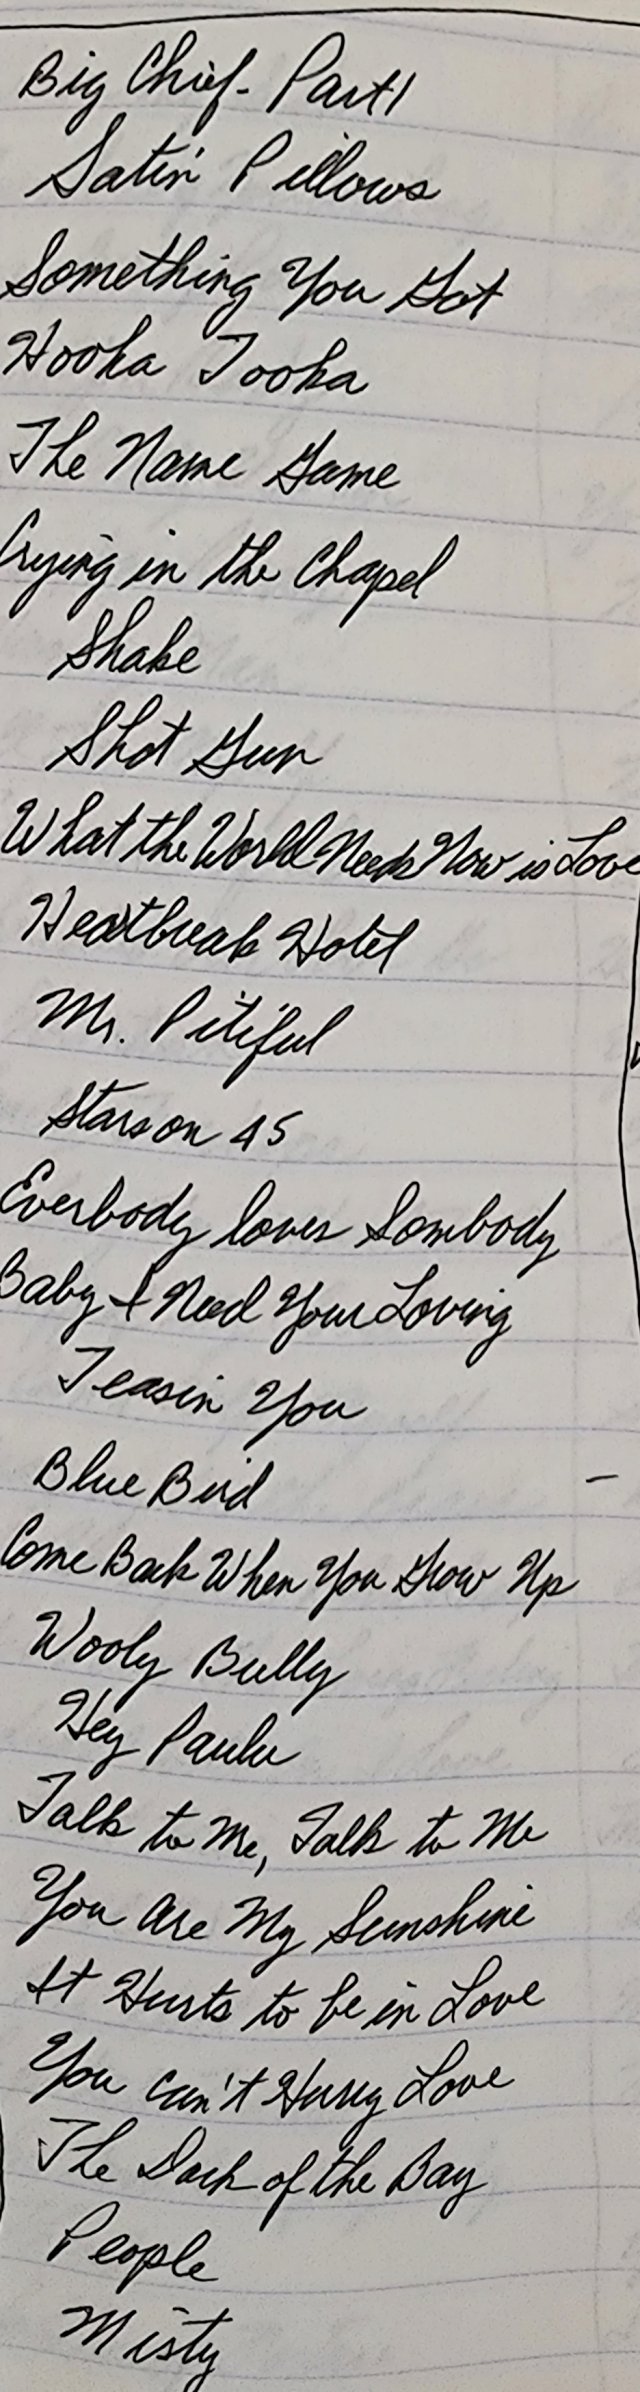 Big Chief - Part 1
Satin Pillows
Something You Got
Hooka Tooka
The Name Game
Crying in the Chapel
Shake
Shot Gun
What the World Needs Now is Love
Heartbreak Hotel
Mr. Pitiful
Stars on 45
Everbody loves Sombody
Baby I Need Your Loving
Teasin You
Blue Bird
Come Back When You Grow Up
Wooly Bully
Hey Paula
Talk to Me, Talk to Me
You Are My Sunshine
It Hurts to be in Love
You can't Hurry Love
The Dock of the Bay
People
Misty